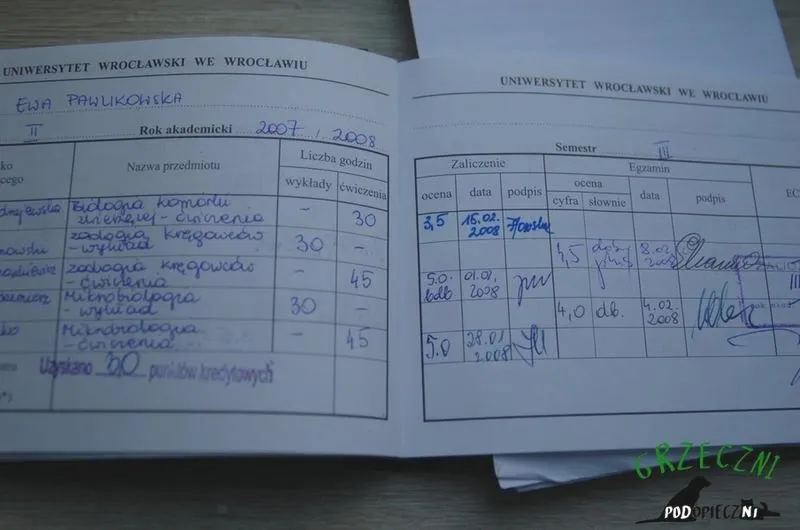 UNIWERSYTET WROCŁAWSKI WE WROCŁAWIU
EWA PAWLIKOWSKA
II Rok akademicki 2007 / 2008
Nazwa przedmiotu Liczba godzin
wykłady ćwiczenia
Biologia komórki
zwierzęcej - ćwiczenia - 30
zoologia kręgowców
- wykład 30 -
zoologia kręgowców
- ćwiczenia - 45
Mikrobiologia
- wykład 30 -
Mikrobiologia
- ćwiczenia - 45
Uzyskano 30 punktów kredytowych
UNIWERSYTET WROCŁAWSKI WE WROCŁAWIU
Semestr III
Zaliczenie Egzamin
ocena data podpis ocena data podpis
cyfra słownie
3,5 15.02.
2008
4,5 dobry
plus 8.02.
2008
5.0
bdb 01.02.
2008
4,0 db. 4.02.
2008
5.0 28.01
2008
III
GRZECZNI
PODOPIECZNI